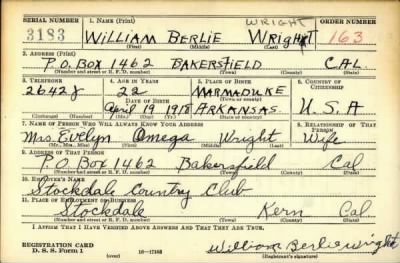 SERIAL NUMBER 1. NAME (Print) WRIGHT ORDER NUMBER
3183 WILLIAM BERLIE WRIGHT 163
(First) (Middle) (Last)
2. ADDRESS (Print)
P.O. BOX 1462 BAKERSFIELD CAL.
(Number and street or R. F. D. number) (Town) (County) (State)
3. TELEPHONE 4. AGE IN YEARS 5. PLACE OF BIRTH 6. COUNTRY OF CITIZENSHIP
2642J 22 MARMADUKE
DATE OF BIRTH (Town or county)
April 19 1918 ARKANSAS. U.S.A
(Exchange) (Number) (Mo.) (Day) (Yr.) (State or country)
7. NAME OF PERSON WHO WILL ALWAYS KNOW YOUR ADDRESS 8. RELATIONSHIP OF THAT PERSON
Mrs. Evelyn Omega Wright Wife
(Mr., Mrs., Miss) (First) (Middle) (Last)
9. ADDRESS OF THAT PERSON
P.O. Box 1462 Bakersfield Cal
(Number and street or R. F. D. number) (Town) (County) (State)
10. EMPLOYER'S NAME
Stockdale Country Club
11. PLACE OF EMPLOYMENT OR BUSINESS
Stockdale Kern Cal.
(Number and street or R. F. D. number) (Town) (County) (State)
I AFFIRM THAT I HAVE VERIFIED ABOVE ANSWERS AND THAT THEY ARE TRUE.
REGISTRATION CARD
D. S. S. Form 1 (over) 16-17105 William Berlie Wright
(Registrant's signature)